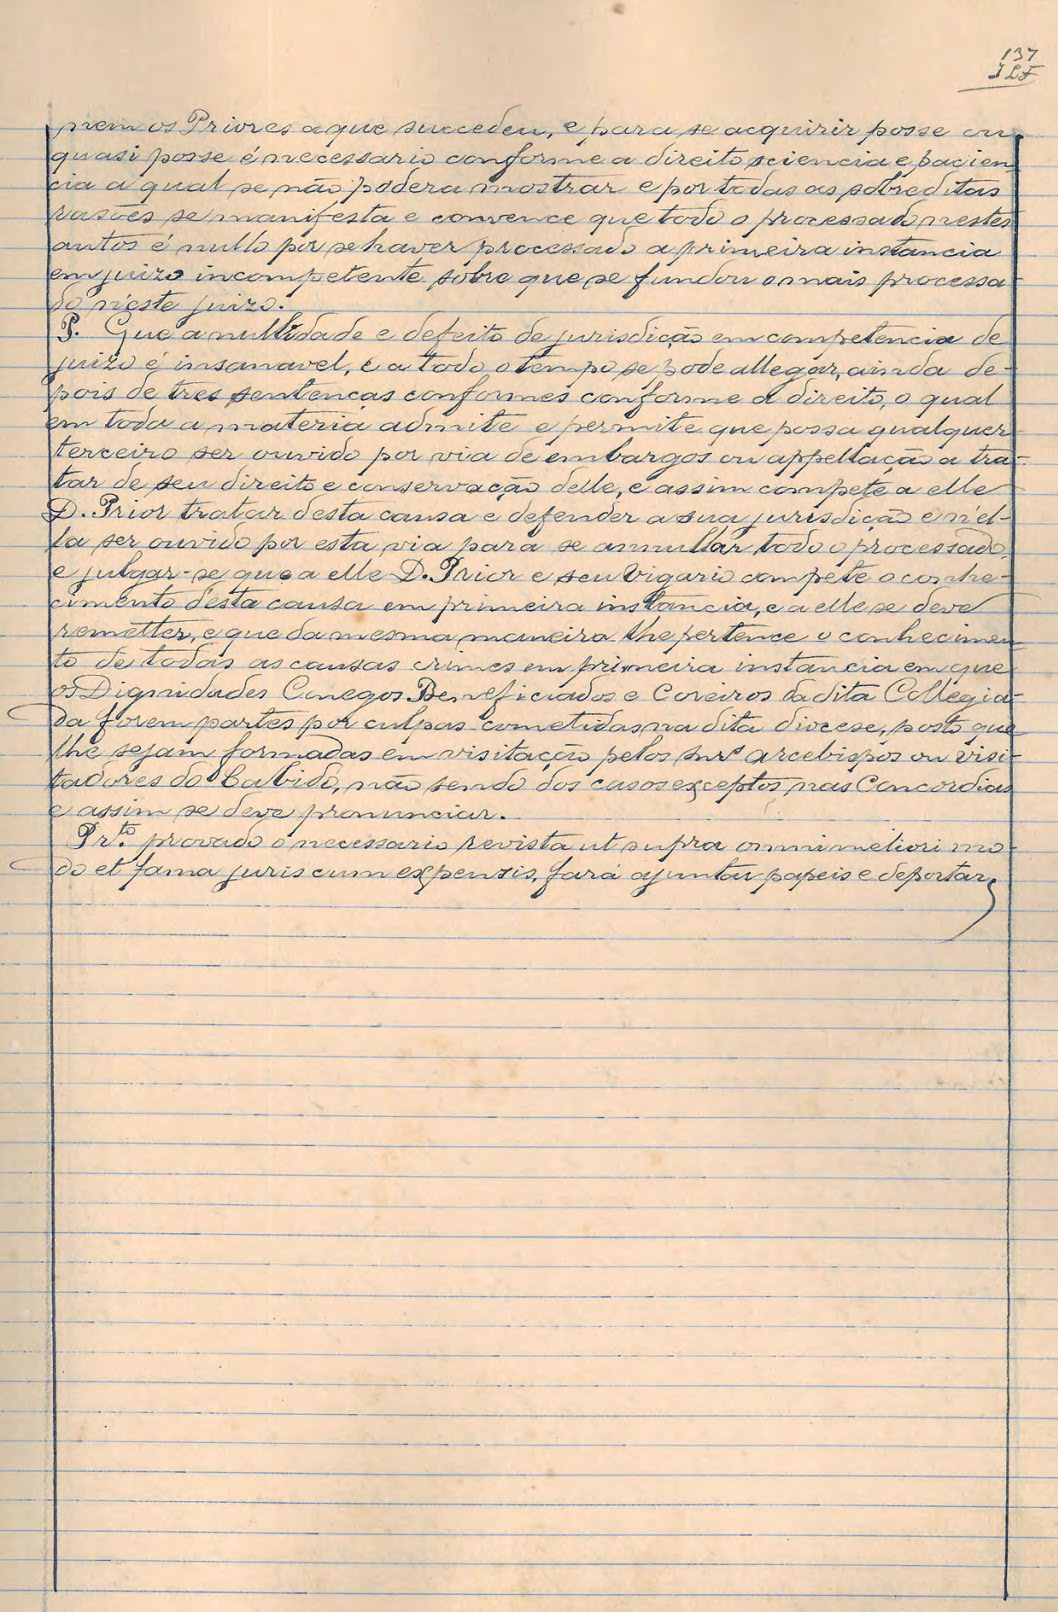 137
JLF
nem os Priores a que succedeu, e para se acquirir posse ou
quasi posse é necessario conforme a direito sciencia e pacien
cia a qual se não podera mostrar e por todas as sobreditas
rasões se manifesta e convence que todo o processado nestes
autos é nullo por se haver processado a primeira instancia
em juizo incompetente sobre que se fundou o mais processa
do n'este juizo.
P. Que a nullidade e defeito de jurisdição em competencia de
juizo é insanavel, e a todo o tempo se pode allegar, ainda de-
pois de tres sentenças conformes conforme a direito, o qual
em toda a materia admite e permite que possa qualquer
terceiro ser ouvido por via de embargos ou appellação a tra-
tar de seu direito e conservação delle, e assim compete a elle
D. Prior tratar desta causa e defender a sua jurisdição e n'el-
la ser ouvido por esta via para se annullar todo o processado,
e julgar-se que a elle D. Prior e seu Vigario compete o conhe-
cimento d'esta causa em primeira instancia, e a elle se deve
remetter, e que da mesma maneira lhe pertence o conhecimen
to de todas as causas crimes em primeira instancia em que
os Dignidades Conegos Beneficiados e Coreiros da dita Collegia-
da forem partes por culpas cometidas na dita diocese, posto que
lhe sejam formadas em visitação pelos Snr.s Arcebispos ou Visi-
tadores do Cabido, não sendo dos casos exceptos nas Concordias
e assim se deve pronunciar.
Pr.to provado o necessario revista ut supra omni meliori mo-
do et fama juris cum expensis, fará ajuntar papeis e deportar,